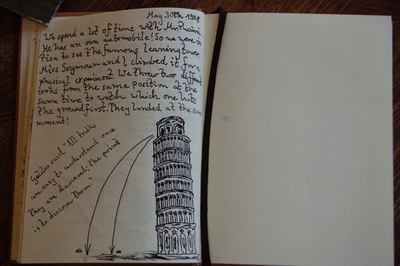 May 30th 1908
We spend a lot of time with Mr. Puccini.
He has an own automobile! So we were in
Pisa to see the famous leaning tower.
Miss Seymour and I climbed it for a
physical experiment. We threw two different
from the same position at the
same time to watch which one hits
the ground first. They landed at the same
moment!
Galileo said "All truths
are easy to understand once
they are discovered; the point
is to discover them."